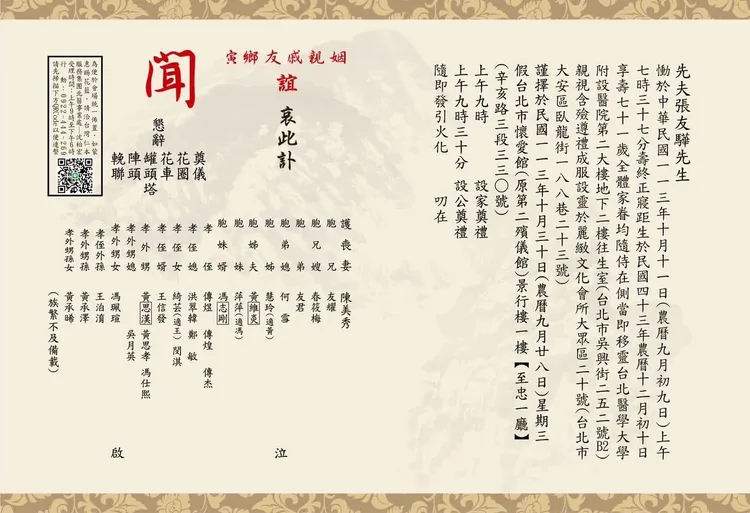 先夫張友驊先生
慟於中華民國一一三年十月十一日(農曆九月初九日)上午
七時三十七分壽終正寢距生於民國四十三年農曆十二月初十日
享壽七十一歲全體家眷均隨侍在側當即移靈台北醫學大學
附設醫院第二大樓地下二樓往生室(台北市吳興街二五二號B2)
親視含殮遵禮成服設靈於麗緻文化會所大眾區二十號(台北市
大安區臥龍街一八八巷二十三號)
謹擇於民國一一三年十月三十日(農曆九月廿八日)星期三
假台北市懷愛館(原第二殯儀館)景行樓一樓【至忠一廳】
(辛亥路三段三三〇號)
上午九時 設家奠禮
上午九時三十分 設公奠禮
隨即發引火化 叨在
姻親戚友鄉寅
誼 哀此訃
聞
懇辭
奠儀
花圈
花車
罐頭塔
陣頭
輓聯
為便於會場統一佈置,如蒙
惠賜花籃,請洽台灣仁本
服務集團北醫事業處沈柏宏
受理時間:上午9時至下午6時
行動:0932-444-269
請先掃描下方QRCode以便連繫
護喪妻 陳美秀
胞兄 友耀
胞兄嫂 春筱梅
胞弟 友君
胞弟媳 何雪
胞姊 慧玲(適黃)
胞姊夫 黃維炎
胞妹 萍萍(適馮)
胞妹婿 馮志剛
孝侄 傳焜 傳煌 傳杰
孝侄媳 洪翠韓 鄭敏
孝侄女 綺芸(適王) 閔淇
孝侄婿 王信發
孝外甥 黃思漢 黃思孝 馮仕熙
孝外甥媳 吳月英
孝外甥女 馮珮瑄
孝侄外孫 王泊湇
孝外甥孫 黃承澤
孝外甥孫女 黃承晞
(族繁不及備載)
泣
啟